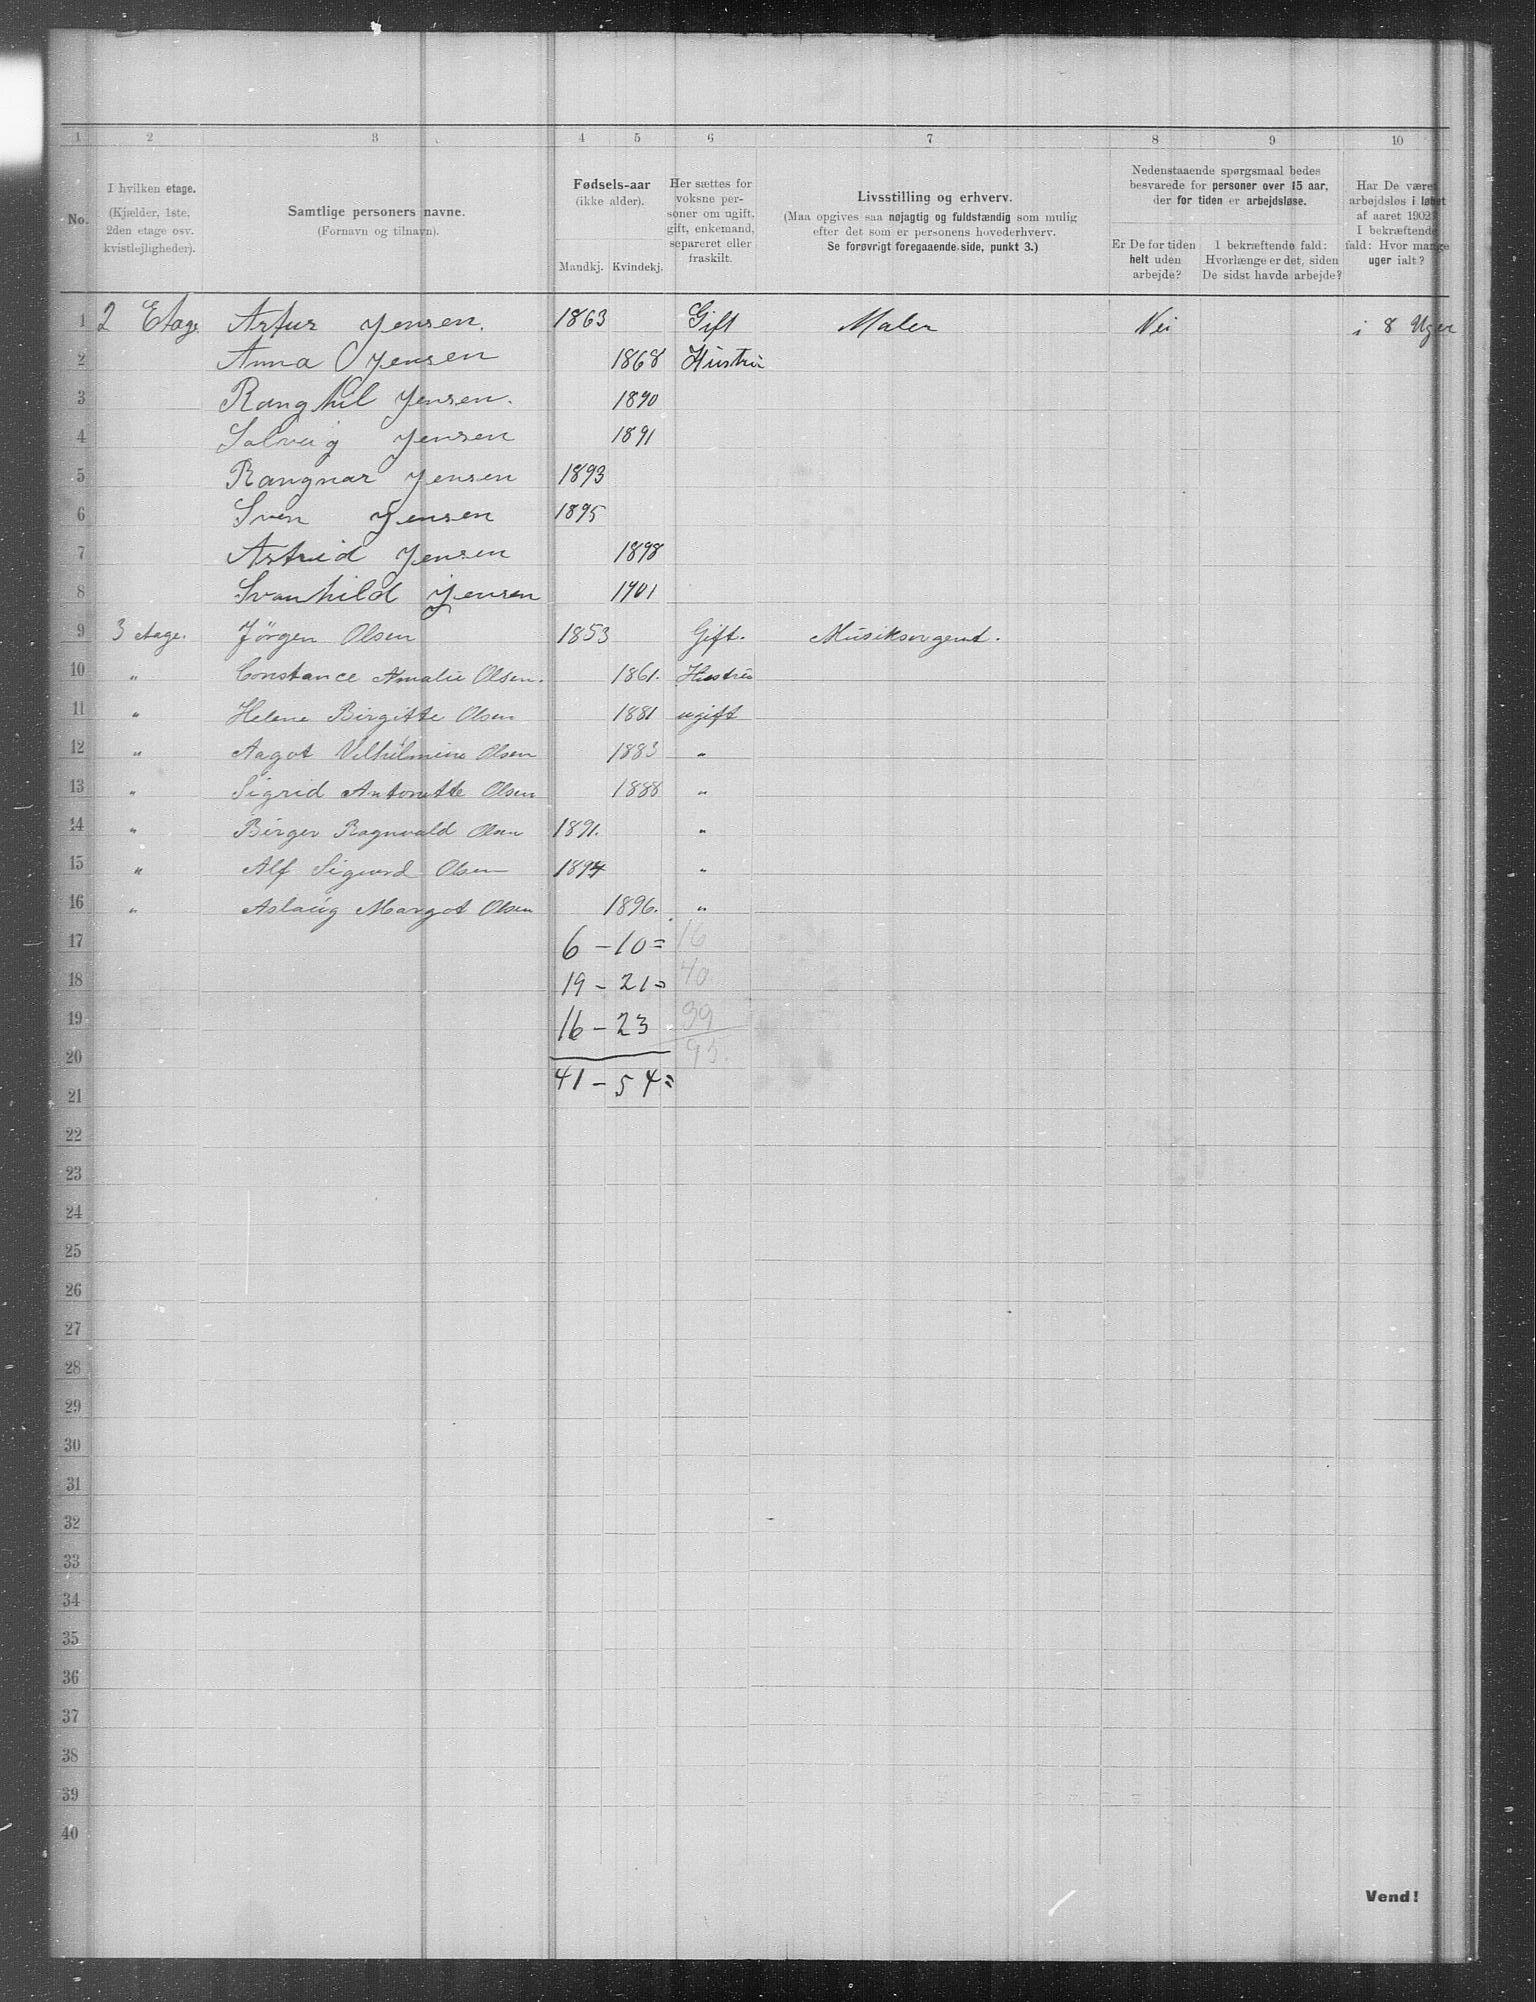 1 2 3 4 5 6 7 8 9 10
No.
I hvilken etage.
(Kjælder, 1ste,
2den etage osv.
kvistlejligheder).
Samtlige personers navne.
(Fornavn og tilnavn).
Fødsels-aar
(ikke alder).
Mandkj. Kvindekj.
Her sættes for
voksne per-
soner om ugift,
gift, enkemand,
separeret eller
fraskilt.
Livsstilling og erhverv.
(Maa opgives saa nøjagtig og fuldstændig som mulig
efter det som er personens hovederhverv.
Se forøvrigt foregaaende side, punkt 3.)
Nedenstaaende spørgsmaal bedes
besvarede for personer over 15 aar,
der for tiden er arbejdsløse.
Er De for tiden
helt uden
arbejde?
I bekræftende fald:
Hvorlænge er det, siden
De sidst havde arbejde?
Har De været
arbejdsløs i løbet
af aaret 1902?
I bekræftende
fald: Hvor mange
uger ialt?
1 2 Etage Artur Jensen. 1863 Gift Maler Nei i 8 Uger
2 Anna Jensen 1868 Hustru
3 Ranghil Jensen. 1890
4 Solveig Jensen 1891
5 Rangnar Jensen 1893
6 Sven Jensen 1895
7 Astrid Jensen 1898
8 Svanhild Jensen 1901
9 3 etage. Jørgen Olsen 1853 Gift. Musiksergent.
10 " Constance Amalie Olsen. 1861. Hustru
11 " Helene Birgitte Olsen 1881 ugift
12 " Aagot Vilhelmine Olsen 1883 "
13 " Sigrid Antonette Olsen 1888 "
14 " Birger Ragnvald Olsen 1891. "
15 " Alf Sigurd Olsen 1894 "
16 " Aslaug Margot Olsen 1896. "
17 6 - 10 = 16
18 19 - 21 = 40
19 16 - 23 39
20 95.
21 41 - 54 =
22
23
24
25
26
27
28
29
30
31
32
33
34
35
36
37
38
39
40
Vend!